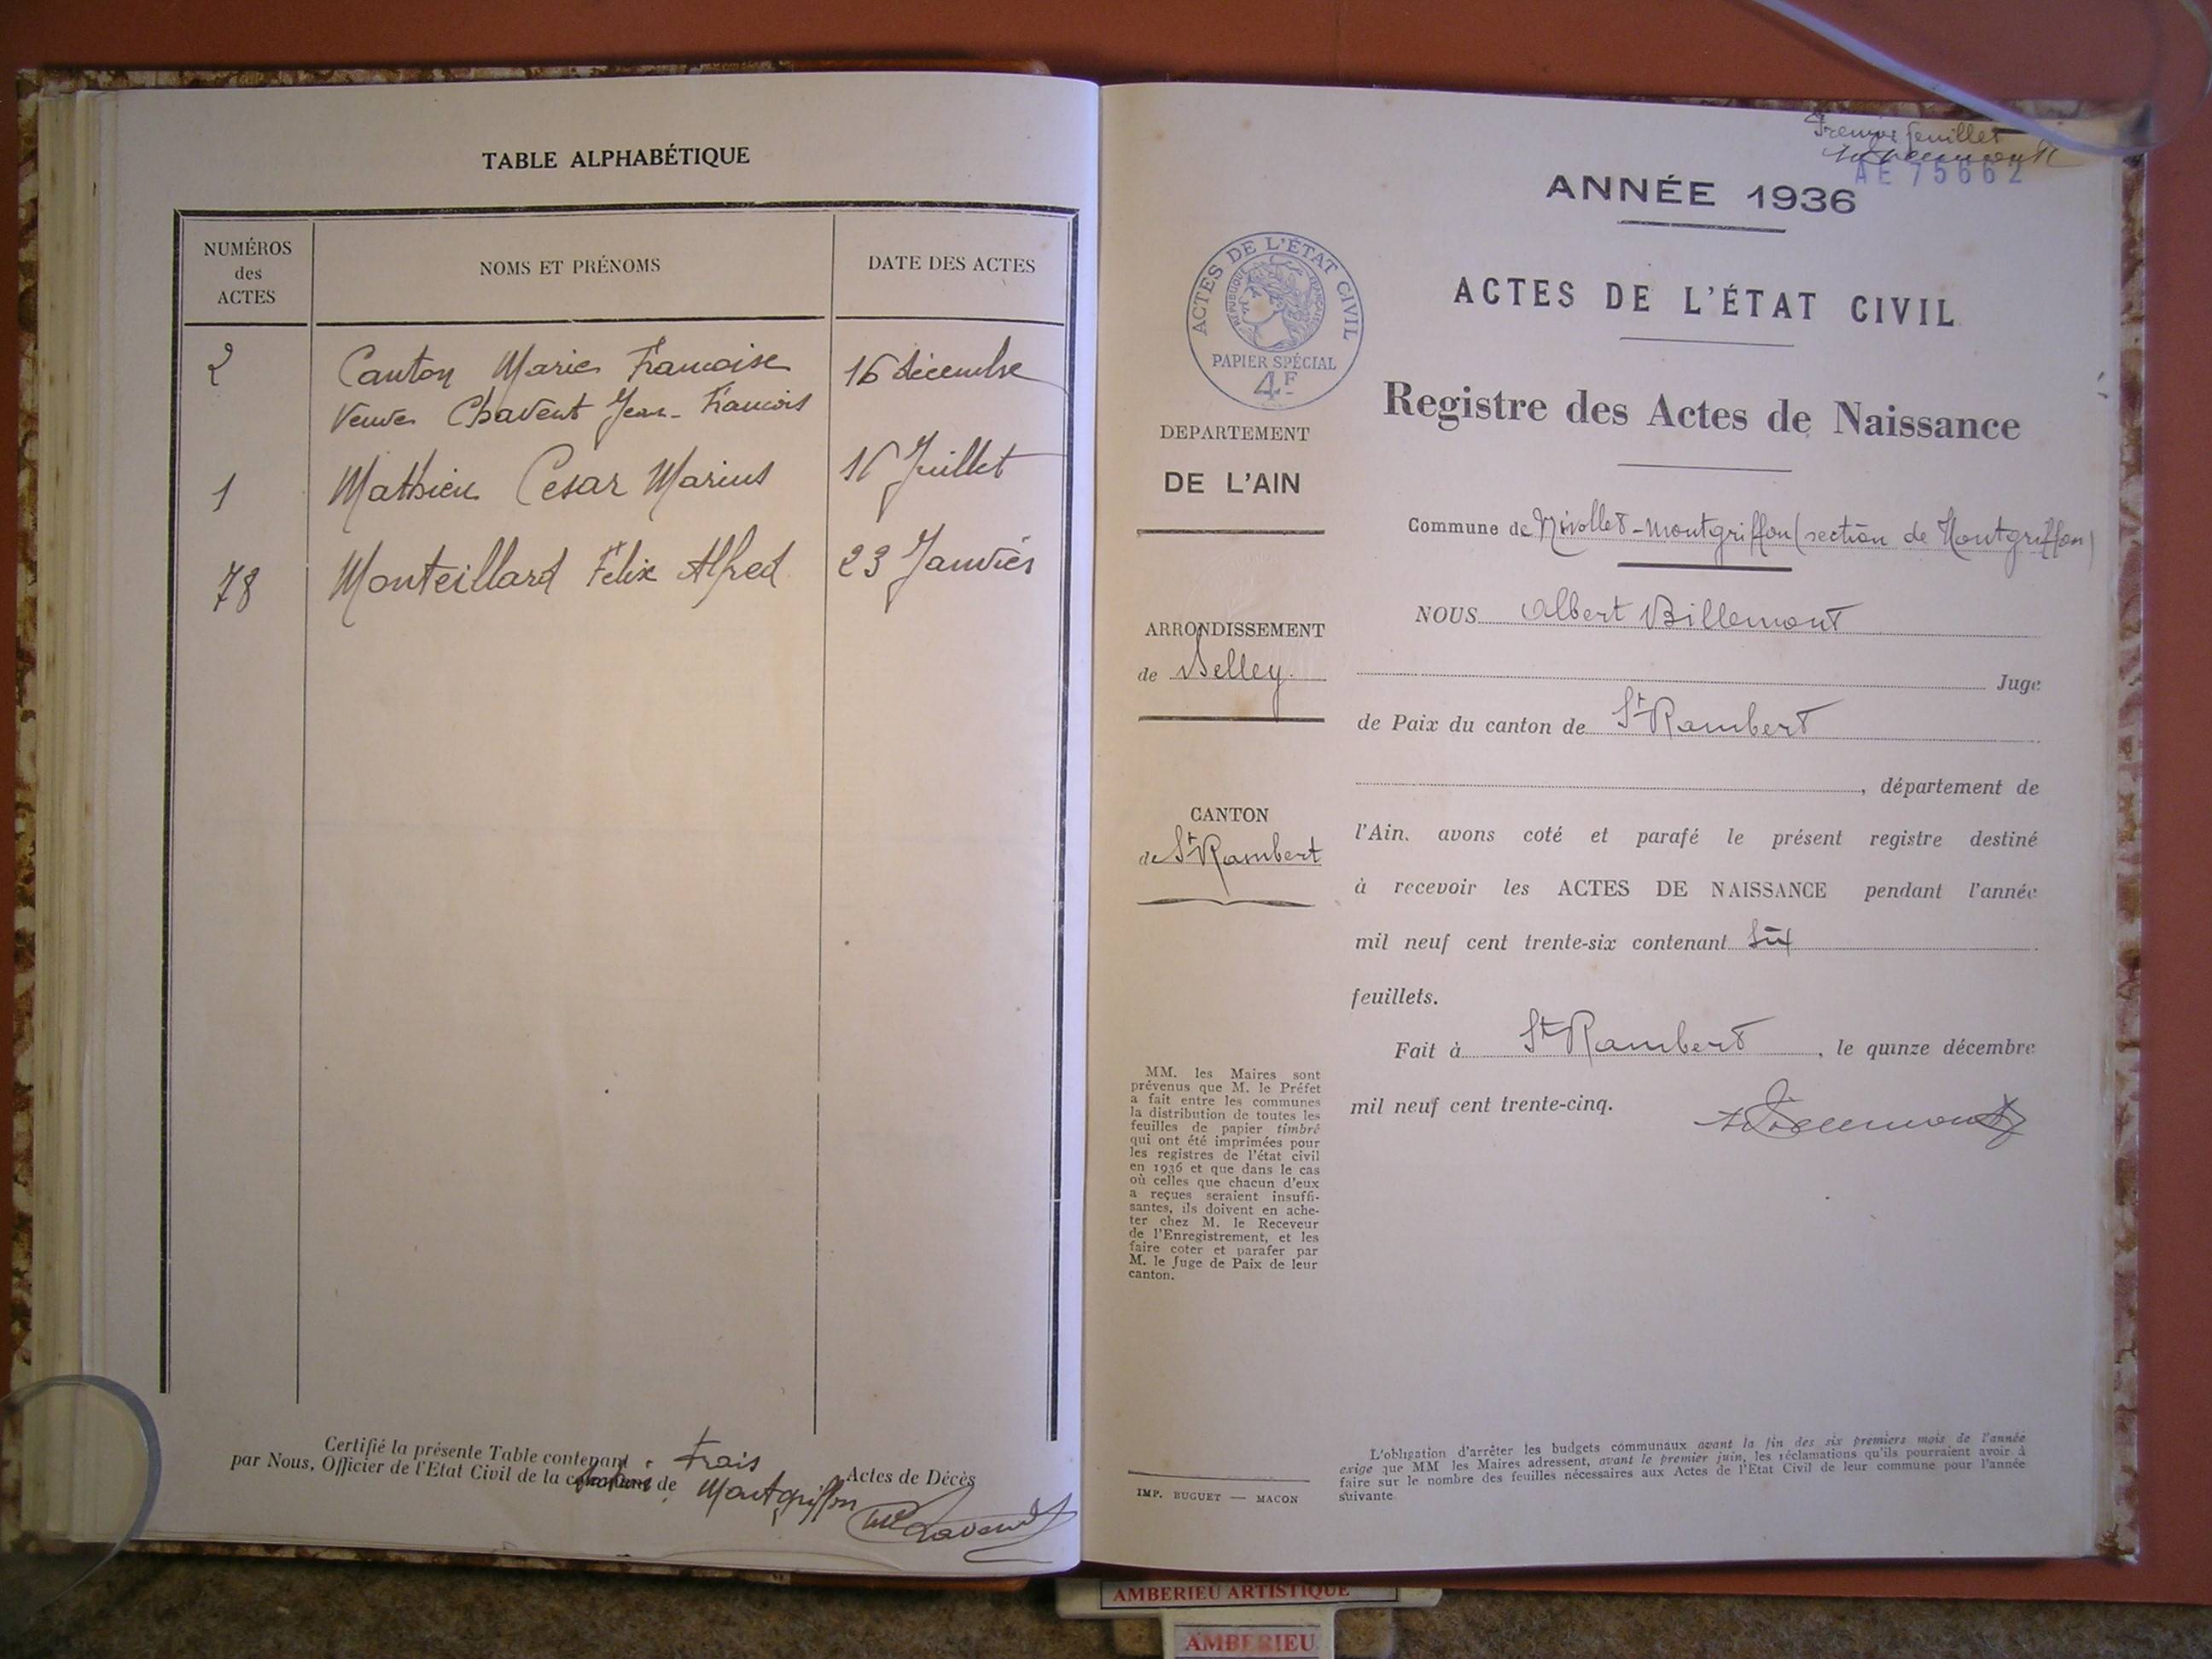 TABLE ALPHABÉTIQUE
NUMÉROS
des
ACTES
NOMS ET PRÉNOMS
DATE DES ACTES
2 Canton Marie Francoise 16 décembre
Veuve Chavent Jean-Francois
1 Mathieu Cesar Marius 16 Juillet
78 Monteillard Félix Alfred 23 Janvier
Certifié la présente Table contenant Trois Actes de Décès
par Nous, Officier de l'Etat Civil de la de Montgriffon
Premier feuillet
AE 75662
ANNÉE 1936
ACTES DE L'ÉTAT CIVIL
Registre des Actes de Naissance
ACTES DE L'ÉTAT CIVIL
RÉPUBLIQUE FRANÇAISE
PAPIER SPÉCIAL
4F
DEPARTEMENT
DE L'AIN
ARRONDISSEMENT
de Belley.
CANTON
de St Rambert
MM. les Maires sont
prévenus que M. le Préfet
a fait entre les communes
la distribution de toutes les
feuilles de papier timbré
qui ont été imprimées pour
les registres de l'état civil
en 1936 et que dans le cas
où celles que chacun d'eux
a reçues seraient insuffi-
santes, ils doivent en ache-
ter chez M. le Receveur
de l'Enregistrement, et les
faire coter et parafer par
M. le Juge de Paix de leur
canton.
IMP. BUGUET — MACON
Commune de Nivollet-Montgriffon (section de Montgriffon)
NOUS Albert Billemont
Juge
de Paix du canton de St Rambert
, département de
l'Ain. avons coté et parafé le présent registre destiné
à recevoir les ACTES DE NAISSANCE pendant l'année
mil neuf cent trente-six contenant six
feuillets.
Fait à St Rambert, le quinze décembre
mil neuf cent trente-cinq.
L'obligation d'arrêter les budgets communaux avant la fin des six premiers mois de l'année
exige que MM les Maires adressent, avant le premier juin, les réclamations qu'ils pourraient avoir à
faire sur le nombre des feuilles nécessaires aux Actes de l'Etat Civil de leur commune pour l'année
suivante
AMBERIEU ARTISTIQUE
AMBERIEU